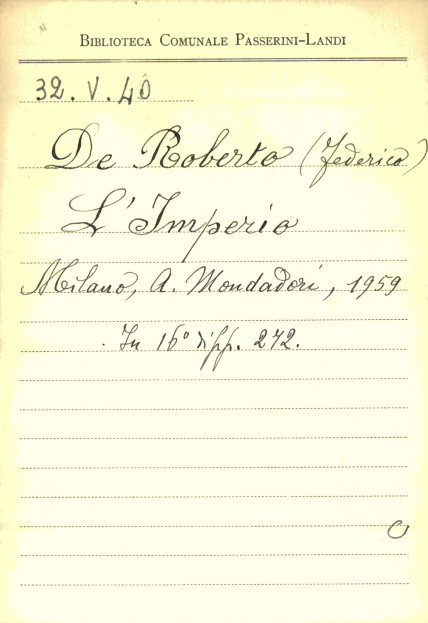 BIBLIOTECA COMUNALE PASSERINI-LANDI
32. V. 40
De Roberto (Federico)
L'Imperio
Milano, A. Mondadori, 1959
In 16° di pp. 272.